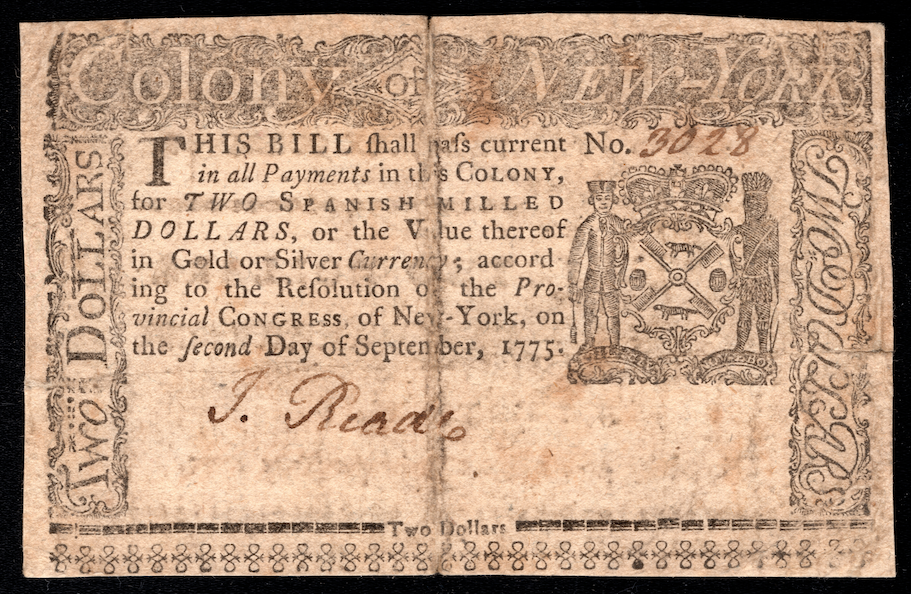 Colony of NEW-YORK
TWO DOLLARS
THIS BILL ſhall paſs current
in all Payments in this COLONY,
for TWO SPANISH MILLED
DOLLARS, or the Value thereof
in Gold or Silver Currency; accord
ing to the Reſolution of the Pro-
vincial CONGRESS, of New-York, on
the ſecond Day of September, 1775.
No. 3028
TWO DOLLARS
J. Reade
Two Dollars